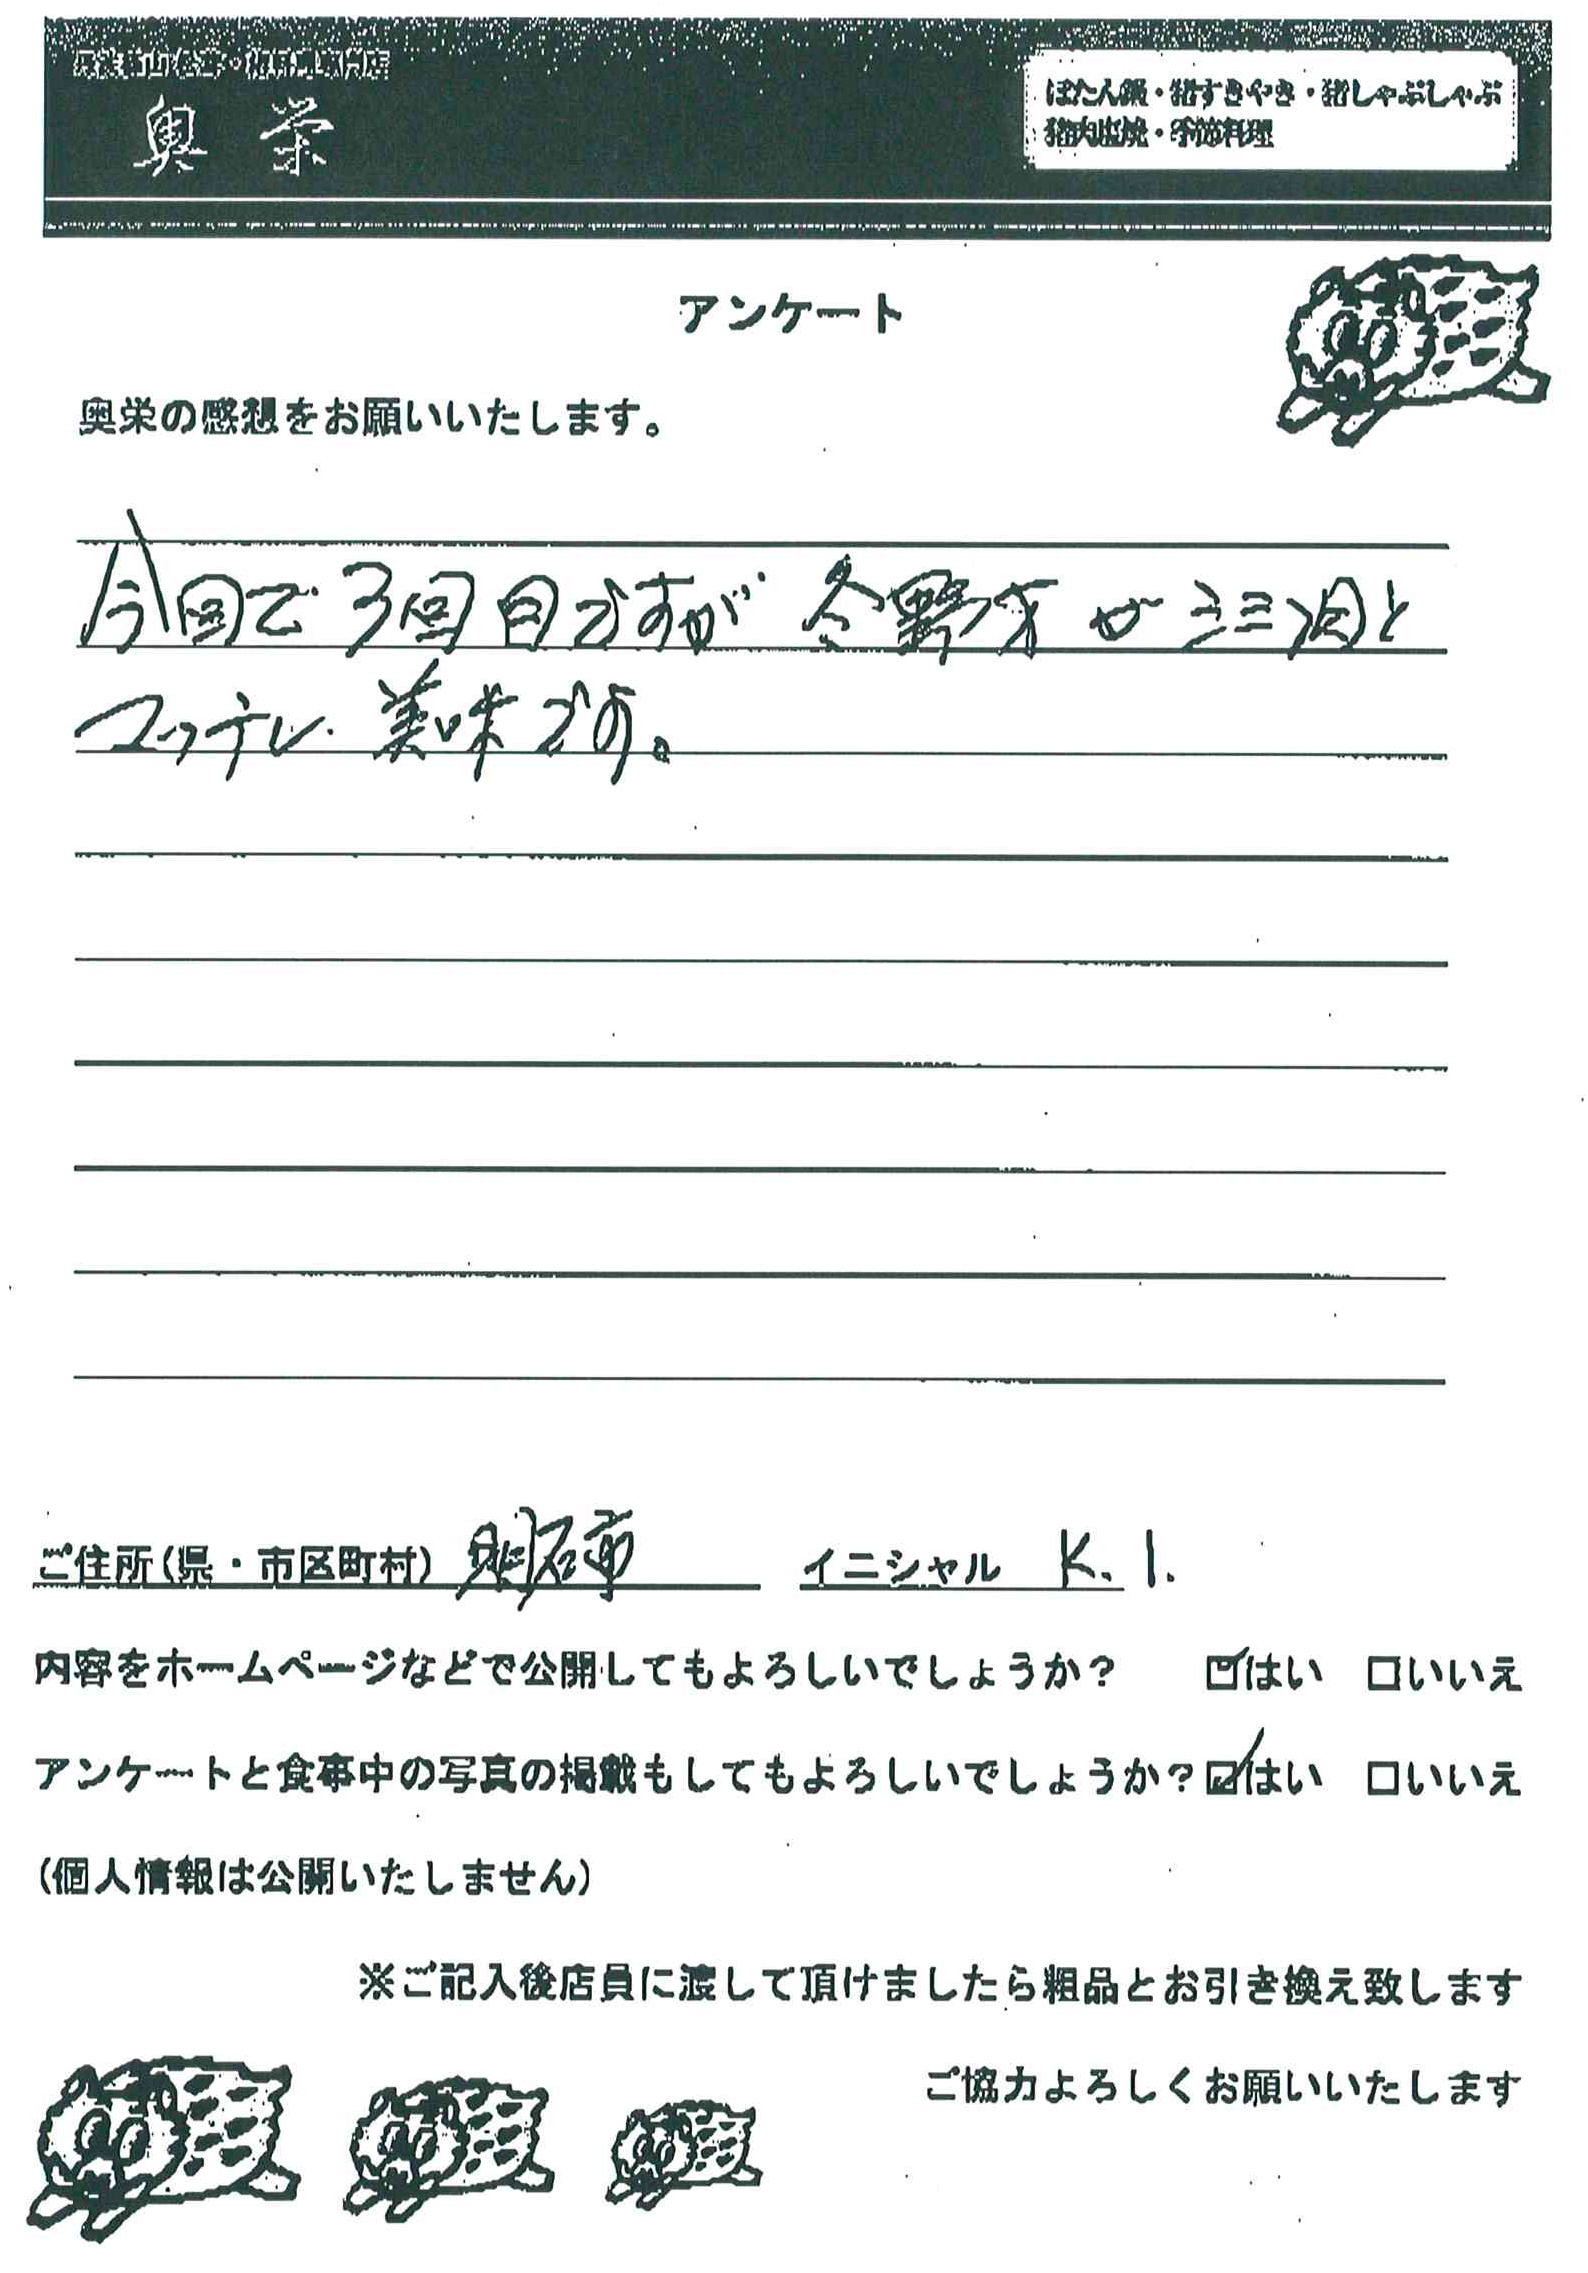 奥栄
ぼたん鍋・猪すきやき・猪しゃぶしゃぶ
猪肉塩焼・季節料理
アンケート
奥栄の感想をお願いいたします。
今回で3回目ですが 冬野菜が 三田と
マッチし 美味です。
ご住所(県・市区町村) 明石市 イニシャル K.I.
内容をホームページなどで公開してもよろしいでしょうか? ☑はい □いいえ
アンケートと食事中の写真の掲載もしてもよろしいでしょうか?☑はい □いいえ
(個人情報は公開いたしません)
※ご記入後店員に渡して頂けましたら粗品とお引き換え致します
ご協力よろしくお願いいたします